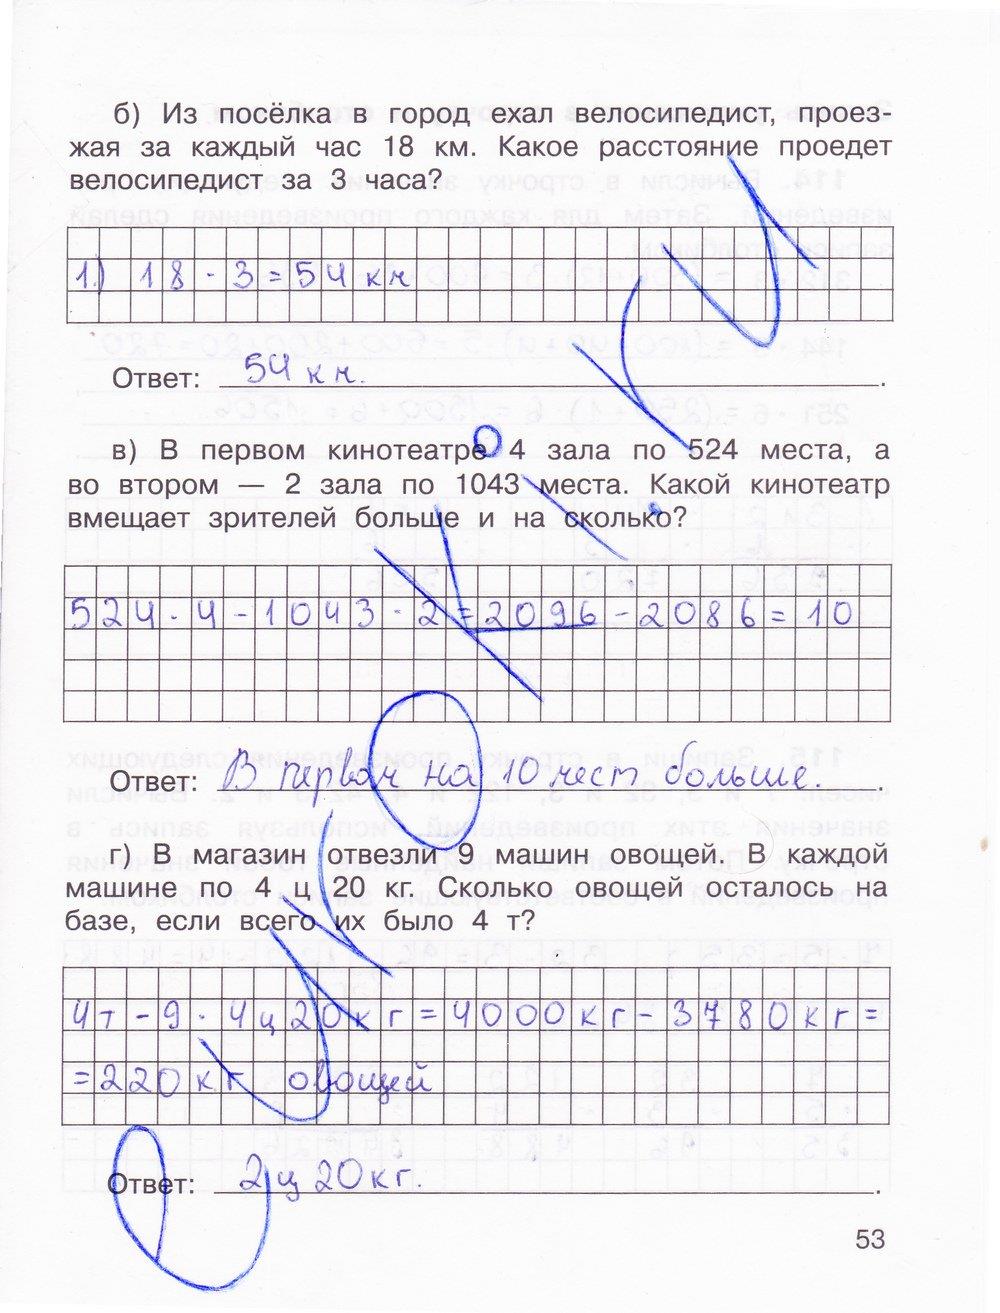 б) Из посёлка в город ехал велосипедист, проез-
жая за каждый час 18 км. Какое расстояние проедет
велосипедист за 3 часа?
1.) 18 · 3 = 54 км
Ответ: 54 км.
в) В первом кинотеатре 4 зала по 524 места, а
во втором — 2 зала по 1043 места. Какой кинотеатр
вмещает зрителей больше и на сколько?
524 · 4 - 1043 · 2 = 2096 - 2086 = 10
Ответ: В первом на 10 мест больше.
г) В магазин отвезли 9 машин овощей. В каждой
машине по 4 ц 20 кг. Сколько овощей осталось на
базе, если всего их было 4 т?
4т - 9 · 4ц20кг = 4000кг - 3780кг =
= 220кг овощей
Ответ: 2ц 20кг.
53